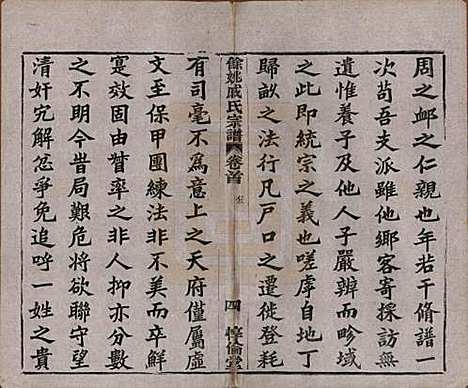 周之䘏之仁親也年若干脩譜一
次苟吾支派雖他鄉客寄採訪無
遺惟養子及他人子嚴辨而畛域
之此即統宗之義也嗟虖自地丁
歸畝之法行凡戶口之遷徙登耗
餘姚戚氏宗譜 卷首 四 惇倫堂
有司毫不為意上之天府僅屬虛
文至保甲團練法非不美而卒鮮
寔效固由督率之非人抑亦分數
之不明今昔局難危將欲聯守望
清奸宄解忿爭免追呼一姓之責